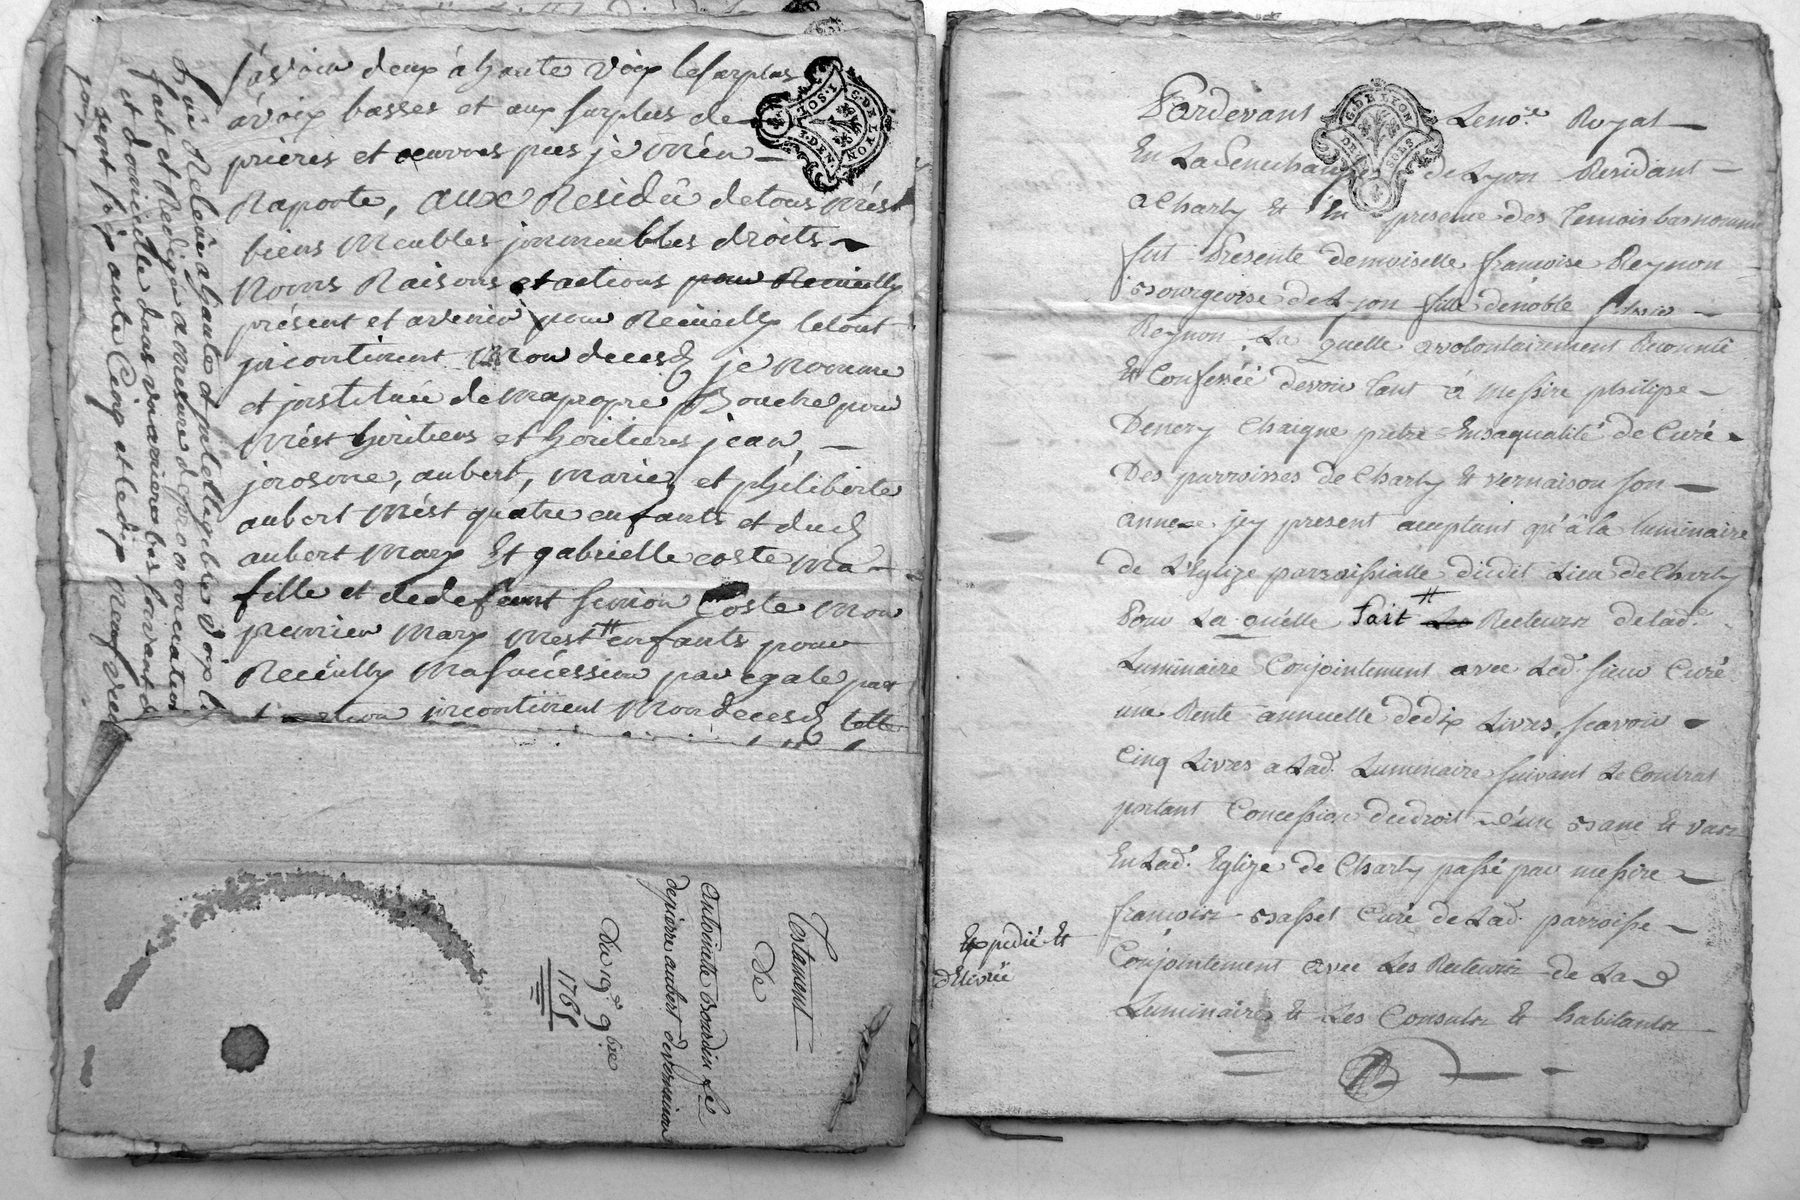 sàvoir deux à haute voix le surplus
à voix basses et aux surplus de
prières et œuvres pies je m'en
Raporte, aux Residû de tous mést
biens meubles jmmeubles droits
Noms Raisons et actions pour Recueilly
présent et avenir pour Recueilly le tout
jncontinent mon decesd je nomme
et jnstitüé de ma propre Bouche pour
mést hèritiers et hèritieres jean,
jerosme, aubert, marie, et philiberte
aubert mést quatre enfants et dud
aubert mary Et gabrielle coste ma
fille et de defeunt simon Coste mon
premier mary mest enfants pour
Recüilly ma succéssion par egale part
et portion jncontinent mon decesd
Luë Relüe a haute et intelligible voix
fait et Redigé a mesure de prononciation
et domicille dans
sept soixante Cinq et le dix neufvieme
jour
Testament
De
Antoinette Bourdin fe
de pierre aubert de vernaison
Du 19e. 9bre
1765
I.SOL
3.DEN.
G.DE LYON
Pardevant Le nore. Royal
En La Senechaussé de Lyon Residant
a Charly Et En presence des temoins bas nommés
fut Presente demoiselle francoise Reynon
Bourgeoise de Lyon fille de noble
Reynon, La quelle a volontairement Reconnu
Et Confessée devoir tant à messire philipe
Denery Chaigne pretre En sa qualité de Curé
Des parroisses de Charly Et vernaison son
annexe jcy present aceptant qu'à la luminaire
de L'Eglize parroissialle dudit Lieu de Charly
Pour La quélle fait Les Recteurs de lad.
Luminaire Conjointement avec Led. sieur Curé
une Rente annuelle de dix Livres, scavoir
Cinq Livres a Lad. Luminaire suivant Le Contrat
portant Concession du droit d'un Banc Et vase
En Lad. Eglize de Charly passé par messire
francois Basset Curé de Lad. parroisse
Conjointement avec Les Recteurs de La d
Luminaire Et Les Consuls Et habitants
Expedié Et
délivrée
G.DE LYON
SOLS